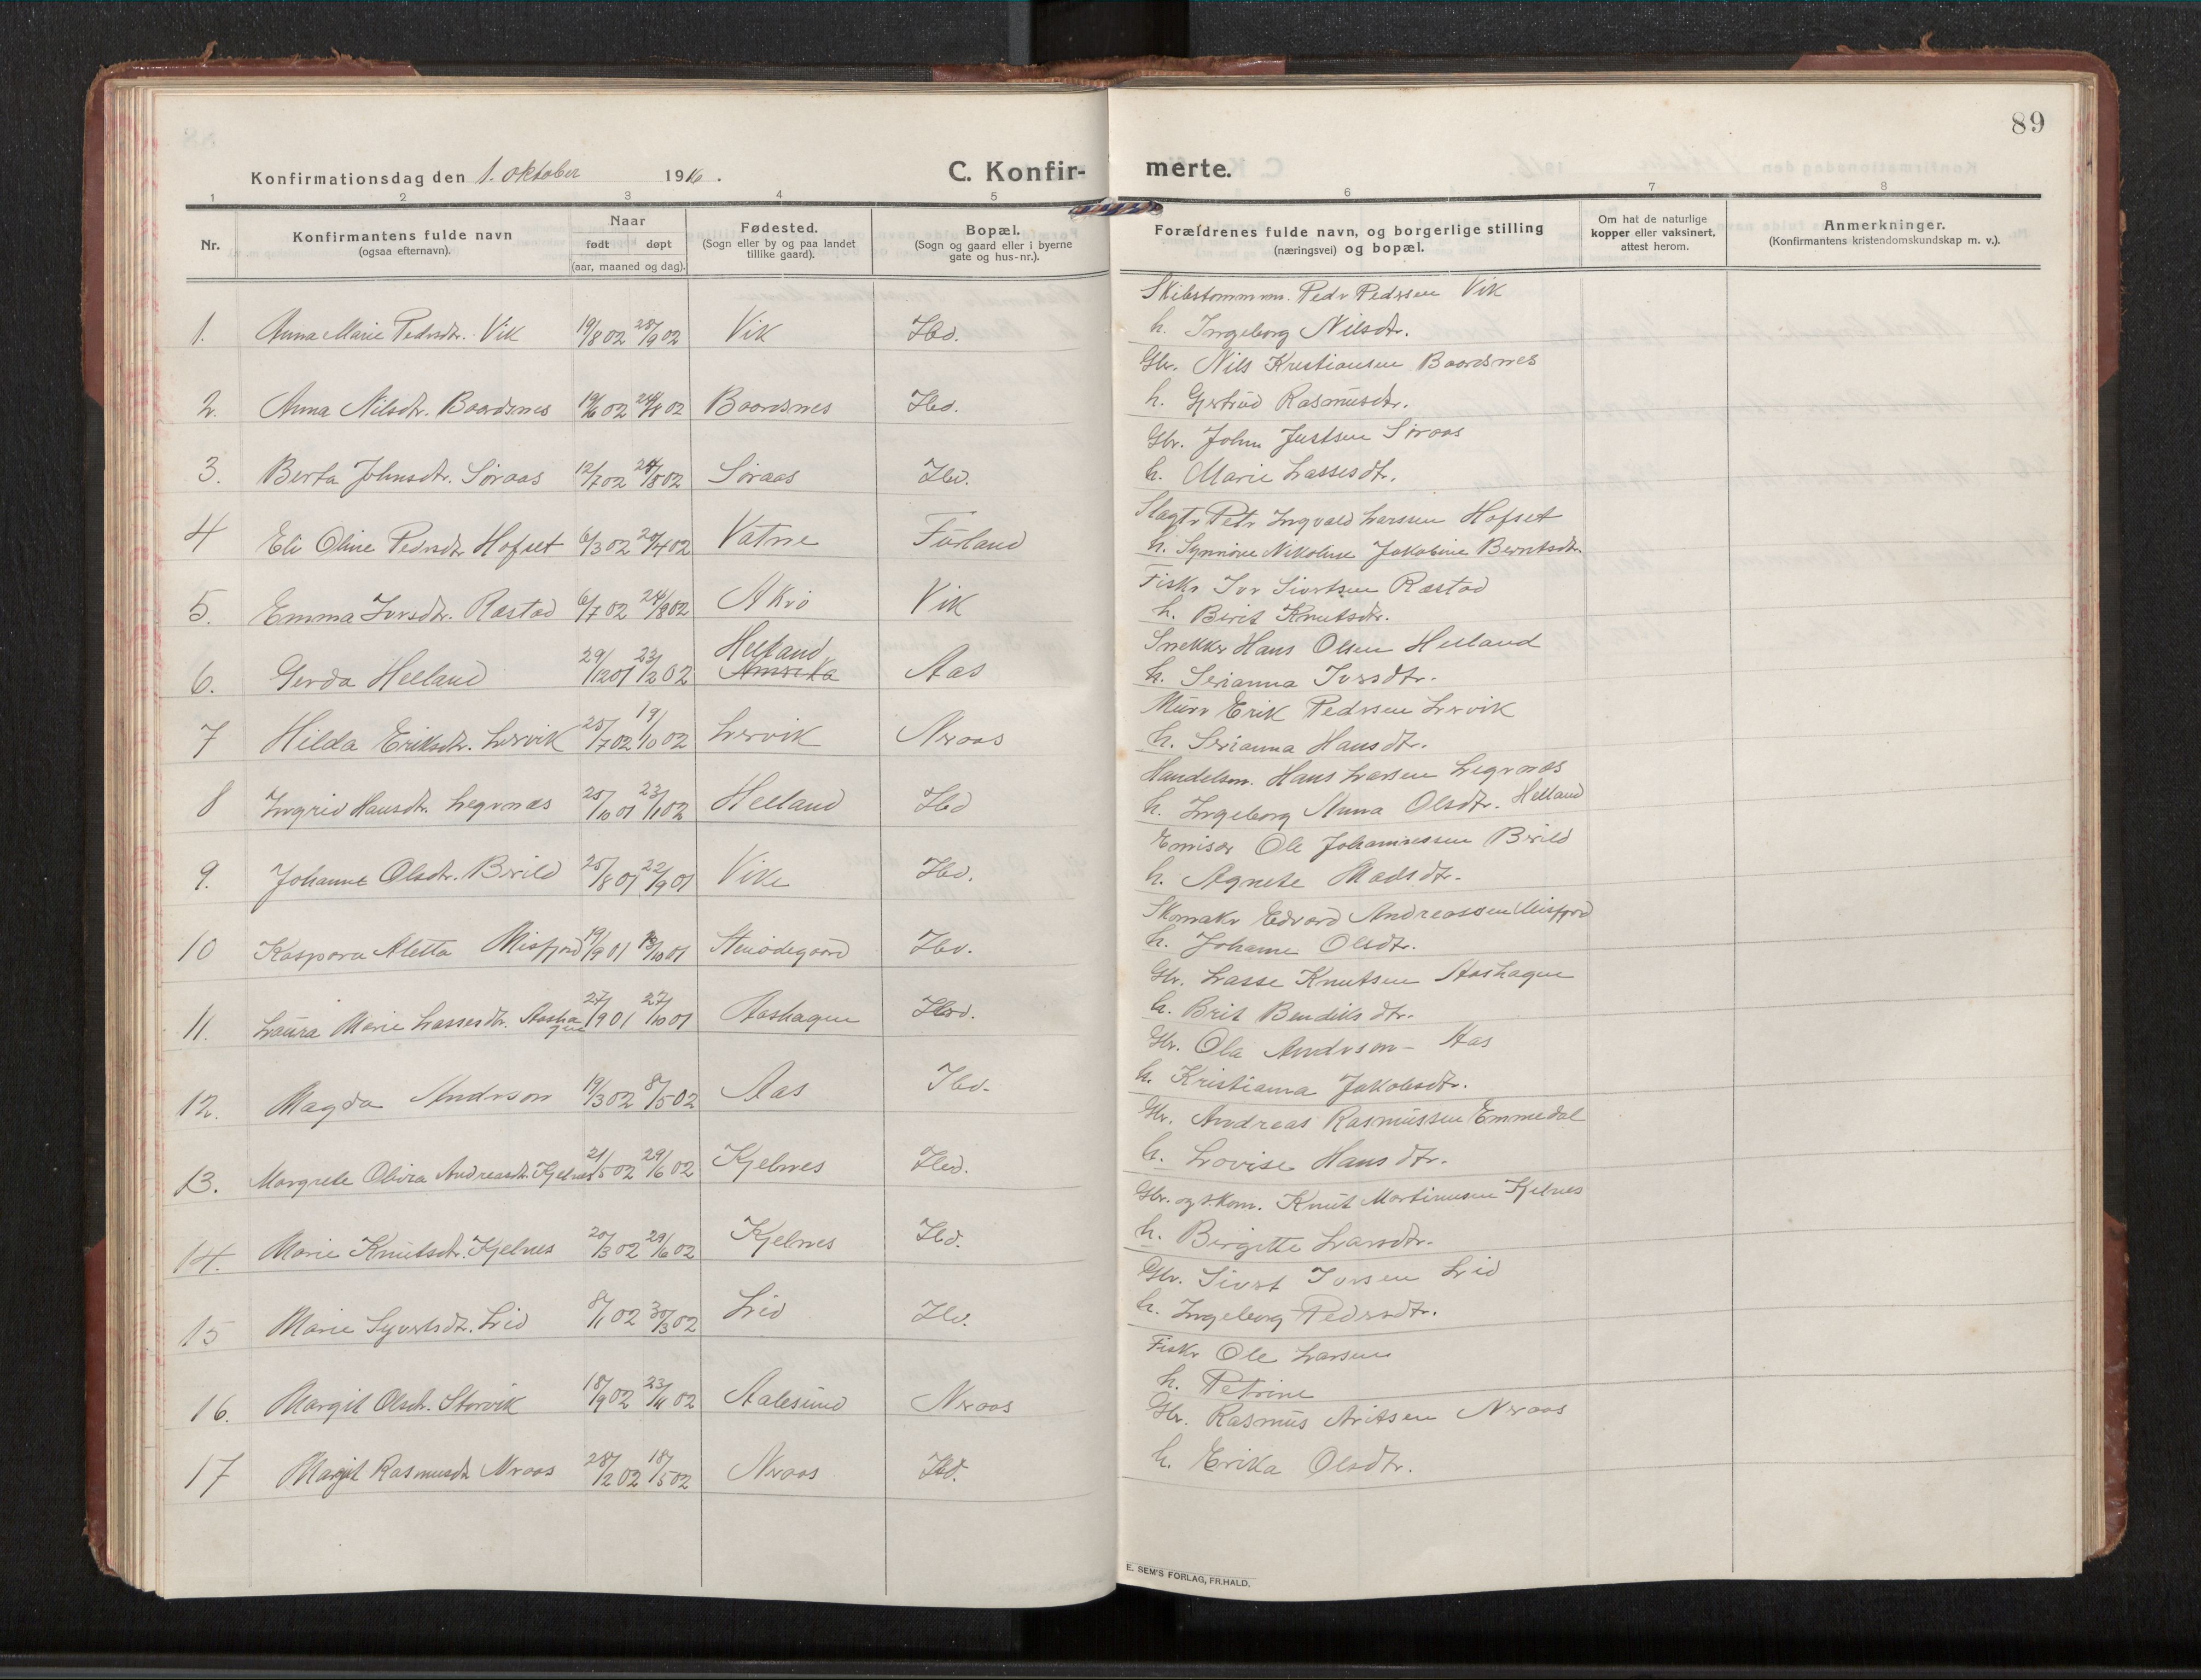 89
Konfirmationsdag den 1. oktober 1916.
C. Konfir-merte.
1 2 3 4 5 6 7 8
Nr.
Konfirmantens fulde navn
(ogsaa efternavn).
Naar
født døpt
(aar, maaned og dag).
Fødested.
(Sogn eller by og paa landet
tillike gaard).
Bopæl.
(Sogn og gaard eller i byerne
gate og hus-nr.).
Forældrenes fulde navn, og borgerlige stilling
(næringsvei) og bopæl.
Om hat de naturlige
kopper eller vaksinert,
attest herom.
Anmerkninger.
(Konfirmantens kristendomskundskap m. v.).
Skibstømmerm. Peder Pedersen Vik
1. Anna Marie Pedersdtr. Vik 19/8 02 28/9 02 Vik Ibd. h. Ingeborg Nilsdtr.
Gbr. Nils Kristiansen Baardsnes
2. Anna Nilsdtr. Baardsnes 19/6 02 24/8 02 Baardsnes Ibd. h. Gjertrud Rasmusdtr.
Gbr. John Justsen Søraas
3. Berta Johnsdtr. Søraas 12/7 02 24/8 02 Søraas Ibd. h. Marie Lassesdtr.
Slagter Peter Ingvald Larssen Hofset
4 Eli Oline Pedersdtr Hofset 6/3 02 20/4 02 Vatne Furland h. Synnøve Nikoline Jakobine Berntsdtr.
Fisker Iver Sivertsen Røstad
5. Emma Iversdtr. Røstad 6/7 02 24/8 02 Akrø Vik h. Berit Knutsdtr.
Snekker Hans Olsen Helland
6. Gerda Helland 29/12 01 23/2 02 Helland Amerika Aas h. Serianna Iversdtr.
Murer Erik Pedersen Lervik
7 Hilda Eriksdtr. Lervik 25/7 02 19/10 02 Lervik Neraas h. Serianna Hansdtr.
Handelsm. Hans Larsen Legernæs
8 Ingrid Hansdtr. Legernæs 25/10 01 23/1 02 Helland Ibd h. Ingeborg Anna Olsdtr. Helland
Emisær Ole Johannessen Berild
9. Johanne Olsdtr. Berild 25/8 01 22/9 01 Vike Ibd. h. Agnete Madsdtr.
Skomaker Edvard Andreassen Misfjord
10 Kaspara Aletta Misfjord 19/9 01 13/10 01 Stenødegaard Ibd. h. Johanne Olsdtr.
Gbr. Lasse Knutsen Aashagen
11. Laura Marie Lassesdtr. Aashagen 27/9 01 27/10 01 Aashagen Ibd. h. Brit Bendiksdtr.
Gbr. Ola Anderson - Aas
12. Magda Anderson 19/3 02 8/5 02 Aas Ibd. h. Kristianna Jakobsdtr.
Gbr. Andreas Rasmussen Emmedal
13. Margrete Olivia Andreasdtr. Kjelnes 21/5 02 29/6 02 Kjelnes Ibd. h. Lovise Hansdtr.
Gbr. og skom. Knut Martinusen Kjelnes
14. Marie Knutsdtr. Kjelnes 20/3 02 29/6 02 Kjelnes Ibd. h. Birgitte Larsdtr.
Gbr. Sivert Iversen Lid
15 Marie Syvertsdtr. Lid 8/1 02 30/3 02 Lid Ibd. h. Ingeborg Pedersdtr.
Fisker Ole Larsen
16. Margit Olsdtr. Storvik 18/9 02 23/11 02 Aalesund Neraas h. Petrine
Gbr. Rasmus Aritsen Neraas
17 Margit Rasmusdtr. Neraas 28/2 02 18/5 02 Neraas Ibd. h. Erika Olsdtr.
E. SEM'S FORLAG, FR.HALD.